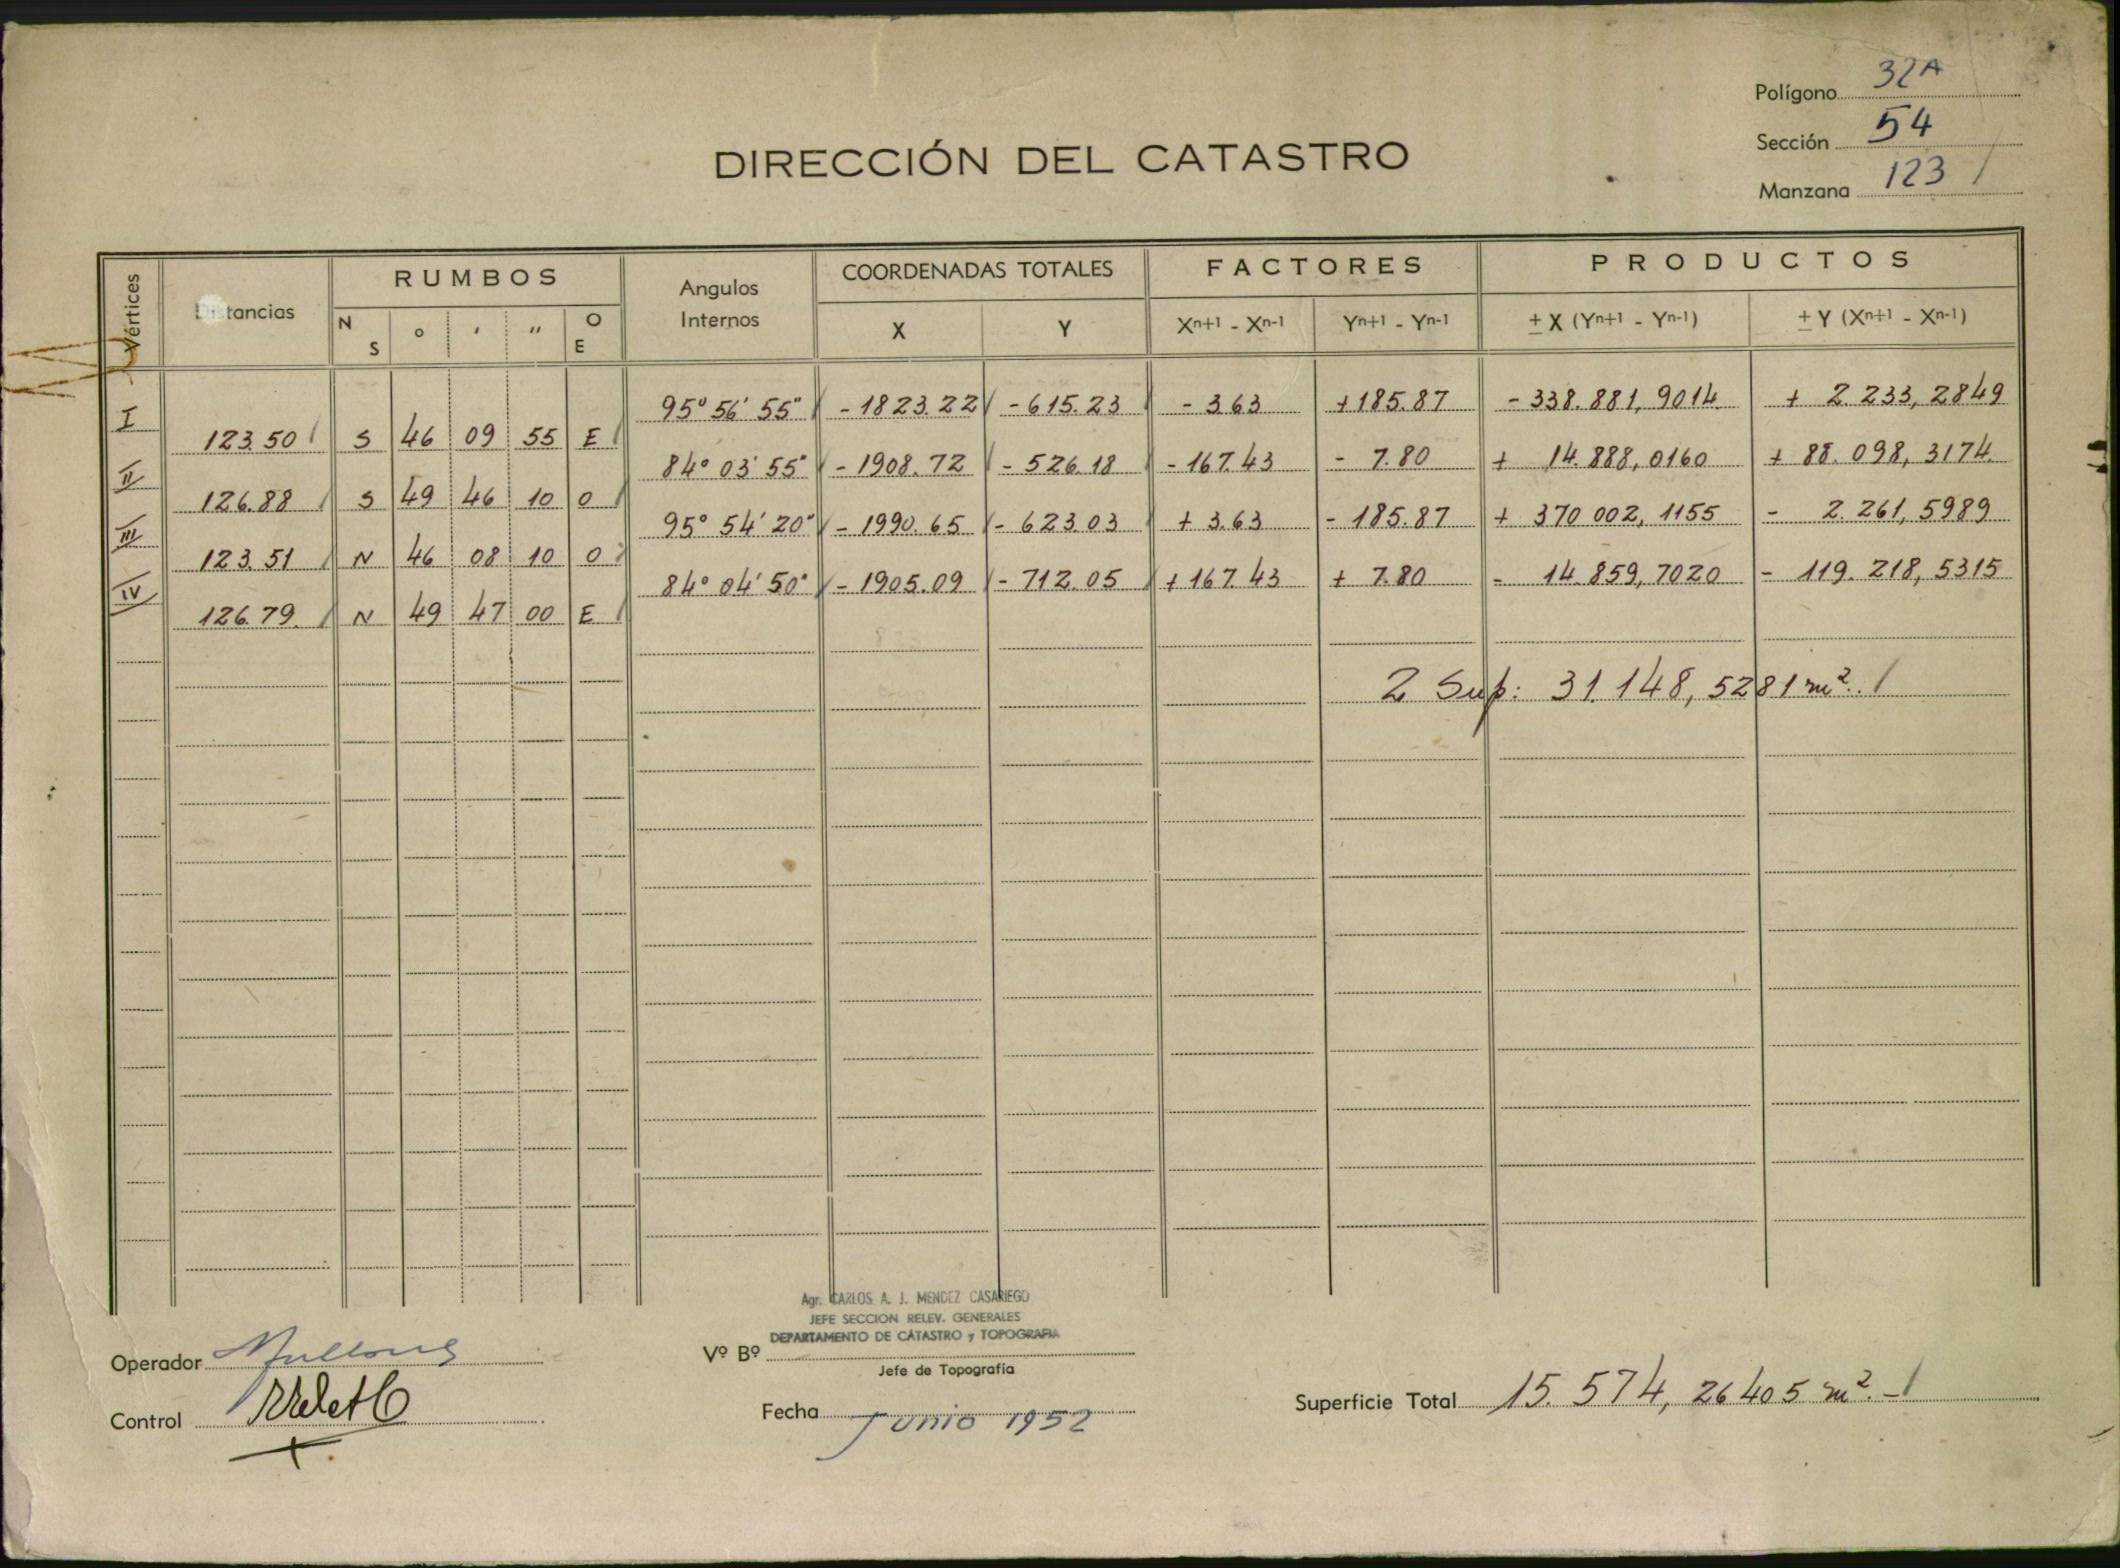 Polígono 32A
Sección 54
Manzana 123 /
DIRECCIÓN DEL CATASTRO
Vértices Distancias RUMBOS Angulos Internos COORDENADAS TOTALES FACTORES PRODUCTOS
N S ° ' '' O E X Y Xn+1 - Xn-1 Yn+1 - Yn-1 ± X (Yn+1 - Yn-1) ± Y (Xn+1 - Xn-1)
I 95° 56' 55" - 1823.22 - 615.23 - 3.63 + 185.87 - 338.881,9014 + 2 233,2849
123.50 S 46 09 55 E
II 84° 03' 55" - 1908.72 - 526.18 - 167.43 - 7.80 + 14.888,0160 + 88.098,3174
126.88 S 49 46 10 O
III 95° 54' 20" - 1990.65 - 623.03 + 3.63 - 185.87 + 370 002,1155 - 2.261,5989
123.51 N 46 08 10 O
IV 84° 04' 50" - 1905.09 - 712.05 + 167.43 + 7.80 - 14.859,7020 - 119.218,5315
126.79 N 49 47 00 E
2 Sup: 31.148,5281 m². /
Agr. CARLOS A. J. MENDEZ CASARIEGO
JEFE SECCION RELEV. GENERALES
DEPARTAMENTO DE CATASTRO y TOPOGRAFIA
Operador
Vº Bº
Jefe de Topografía
Control
Fecha Junio 1952
Superficie Total 15.574,26405 m². - /